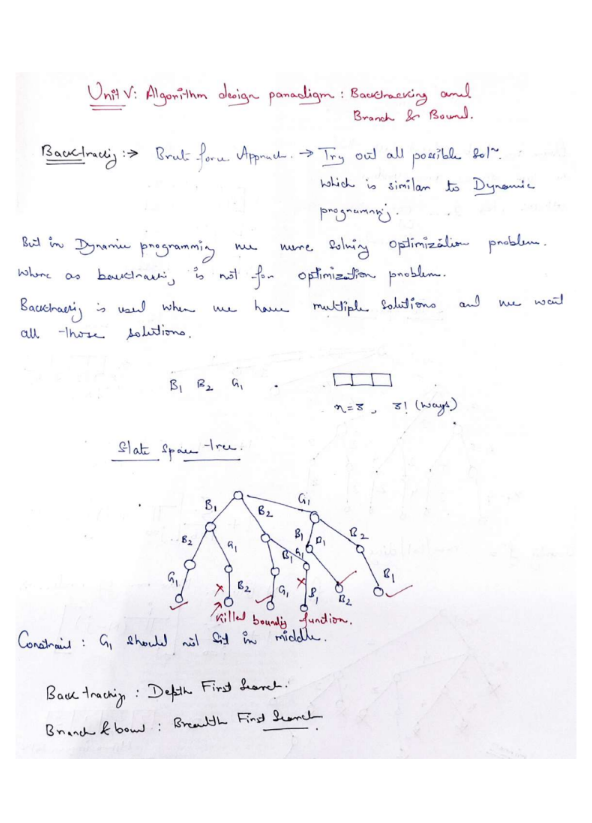 Unit V: Algorithm design paradigm: Backtracking and
Branch & Bound.
Backtracking :→ Brute force Approach. → Try out all possible Solⁿ.
Which is similar to Dynamic
programming.
But in Dynamic programming we were solving optimization problem.
Where as backtracking is not for optimization problem.
Backtracking is used when we have multiple solutions and we want
all those solutions.
B1 B2 G1 .
n=3, 3! (ways)
State space tree.
G1
B1 B2
B1 B2
B2 G1 B1 G1 B1
B1
G1 B2 G1 B1 B2
Killed bounding function.
Constraint : G1 should not sit in middle.
Backtracking : Depth First Search.
Branch & bound : Breadth First Search